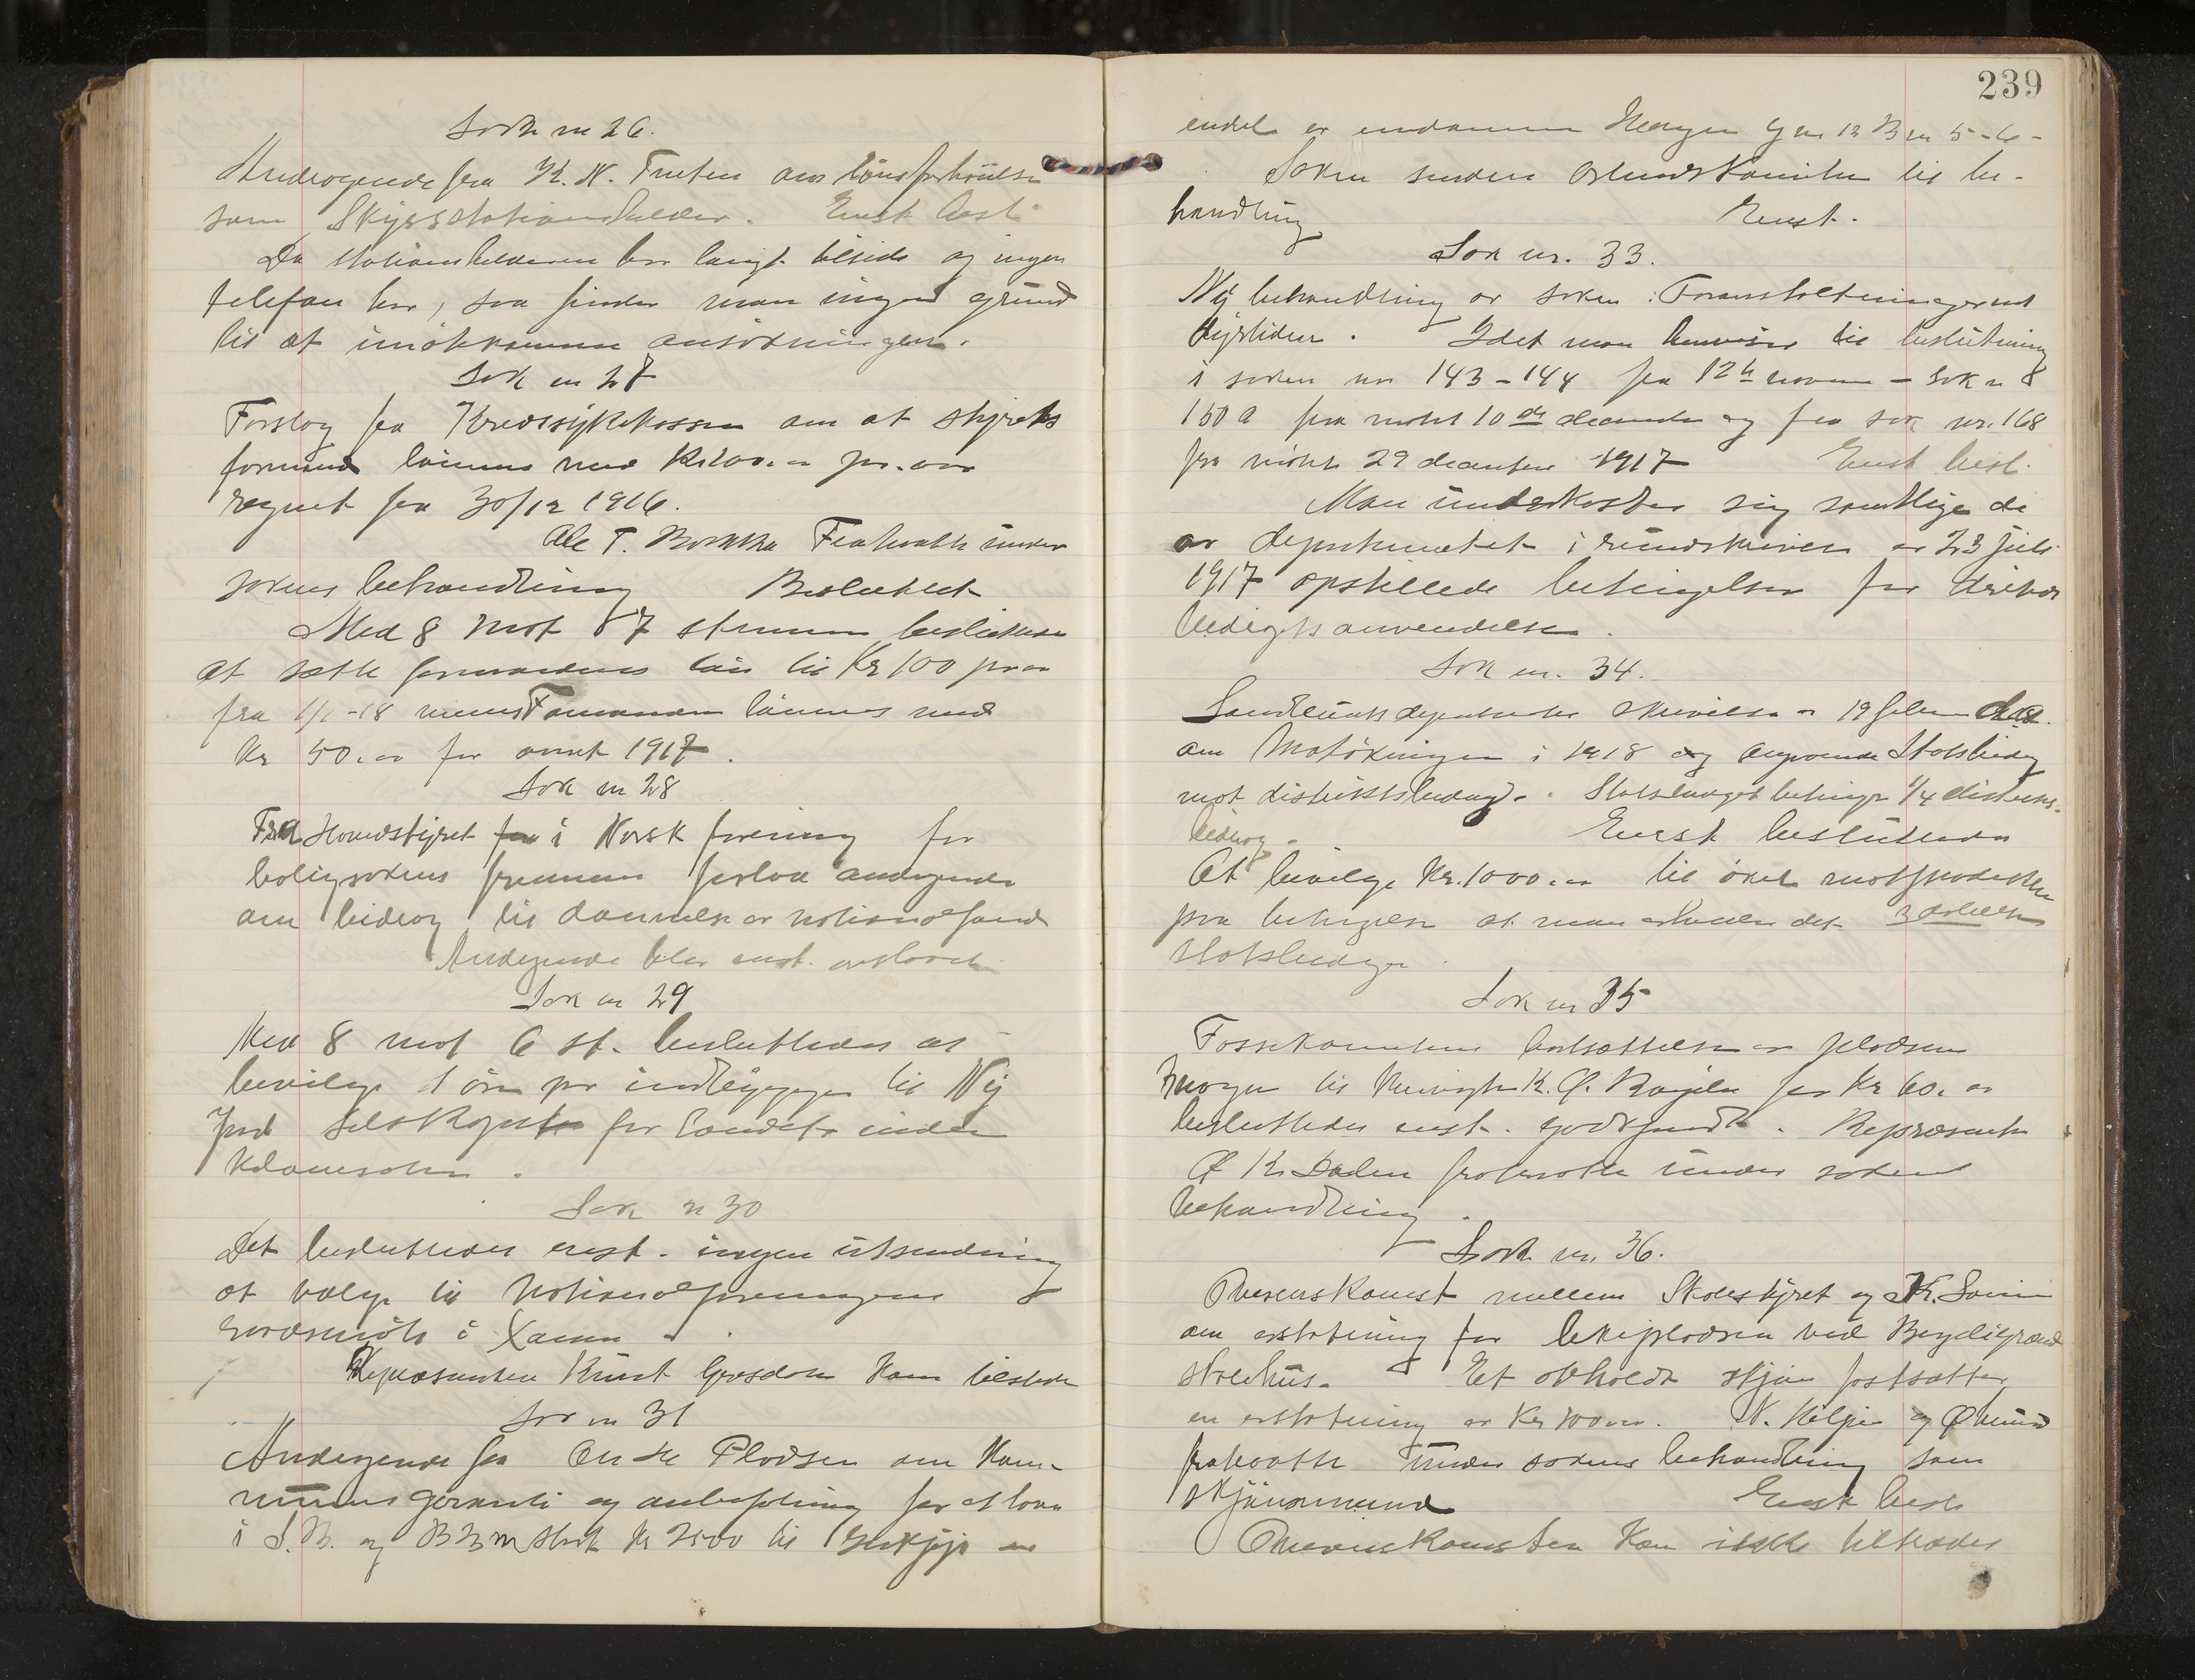 Sak nr 26.
Andragende fra K. N. Tveten om lönsforhöielse
som Skysstationsholder. Enst. besl.
Da stationsholderen bor langt tilside og ingen
telefon har, saa finder man ingen grund
til at imötekomme ansökningen.
Sak nr 27
Forslag fra Kredssykekassen om at styrets
formand lönnes med Kr 200.00 pr. aar
regnet fra 30/12 1916.
Ole T. Fratraatte under
sakens behandling Besluttet
Med 8 mot 7 stemmer besluttedes
at sætte formandens lön til Kr 100 pr aar
fra 1/1-18 mens Formannen lönnes med
Kr 50.00 for aaret 1917.
Sak nr 28
Fra Hovedstyret i Norsk forening for
boligsakens fremme forelaa andragende
om bidrag til dannelse av nationalfond
Andragende blev enst. avslaaet.
Sak nr 29
Med 8 mot 6 st. besluttedes at
bevilge 1 öre pr indbygger til Ny
Jord Selskapet for Landets indre
Kolonisation.
Sak nr 30
Det besluttedes enst. ingen utsending
at vælge til Nationalforeningens
landsmöte i
Repræsentanten Knut kom tilstede
Sak nr 31
Andragende fra Plodsen om kom-
munens garanti og anbefaling for et laan
i S. B. og B Bm stort Kr 2500 til Indkjöp av
239
endel av eiendommen Haugen G nr 12 B nr 5-6-
Saken sendes til be-
handling Enst.
Sak nr. 33.
Ny behandling av saken: Foranstaltninger mot
dyrtiden. Idet man henviser til beslutning
i saken nr 143-144 fra 12te novem - sak nr
150 a fra mötet 10de december og fra sak nr. 168
fra mötet 29 december 1917 Enst besl.
Man underkaster sig samtlige de
av departementet i rundskrivelse av 23 juli
1917 opstillede betingelser for
bidragets anvendelse.
Sak nr. 34.
Landbruksdepartementets skrivelse av 19 febr
om Matökningen i 1918 og angaaende Statsbidrag
mot distriktsbidrag. Statsbidraget betinger 1/4 distrikts-
bidrag. Enst besluttedes
At bevilge Kr. 1000.00 til öket matproduktion
paa betingelse at man erholder det 3 dobbelte
Statsbidrag.
Sak nr 35
Fossekomiteens bortsættelse av pladsen
Haugen til K. O. for Kr 60.00
besluttedes enst. godkjendt. Repræsentant
O K. Dalen fratraatte under sakens
behandling.
Sak nr. 36.
Overenskomst mellem Skolestyret og K.
om erstatning for lekepladsen ved Bergligrend
skolehus. Et avholdt skjön fastsatter
en erstatning av Kr 200.00. N. og
fratraatte under sakens behandling som
skjönsmænd Enst besl
Overenskomsten kan ikke tiltrædes